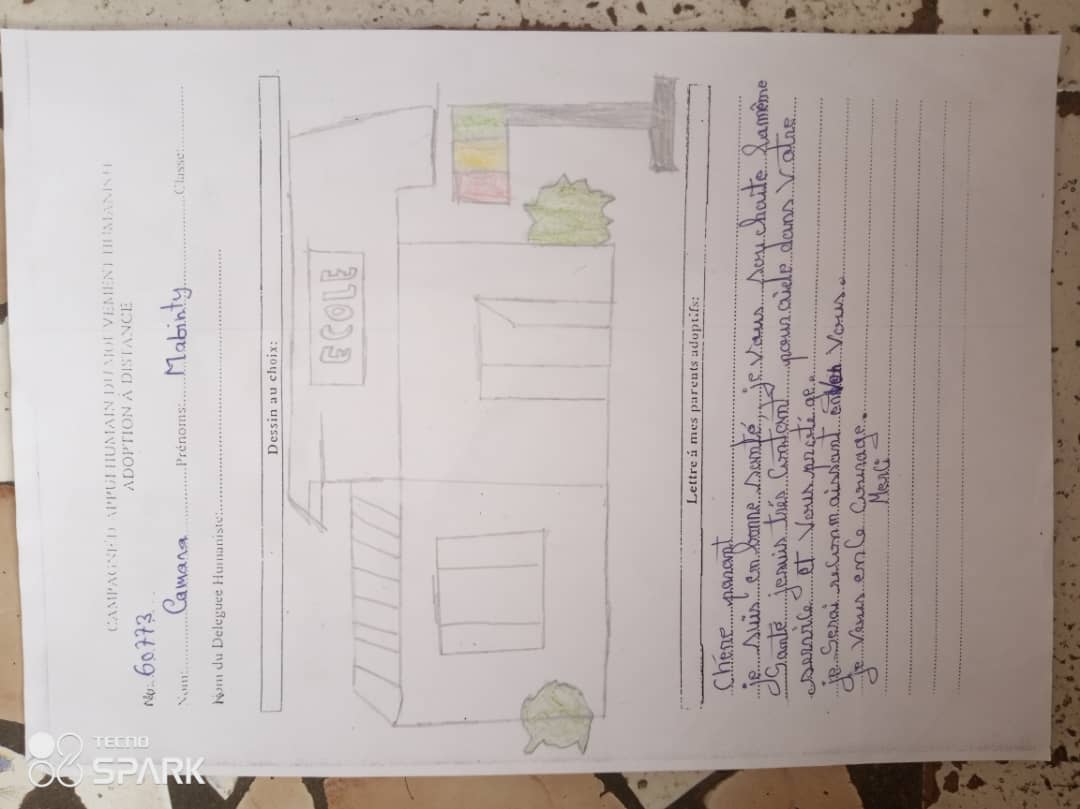 CAMPAGNE D'APPUI HUMAIN DU MOUVEMENT HUMANISTE
ADOPTION À DISTANCE
No: 60773
Nom: Camara Prénoms: Mabinty Classe:
Nom du Deleguee Humaniste:
Dessin au choix:
ECOLE
Lettre à mes parents adoptifs:
Chére parant
je suis en bonne santé, je vous souhaite lamême
Santé jesuis trés Contant pour aide dans Votre
service et Vous proté ge.
je Serai reconnaissant Vous.
je Vous en le Courage.
Merci
TECNO
SPARK